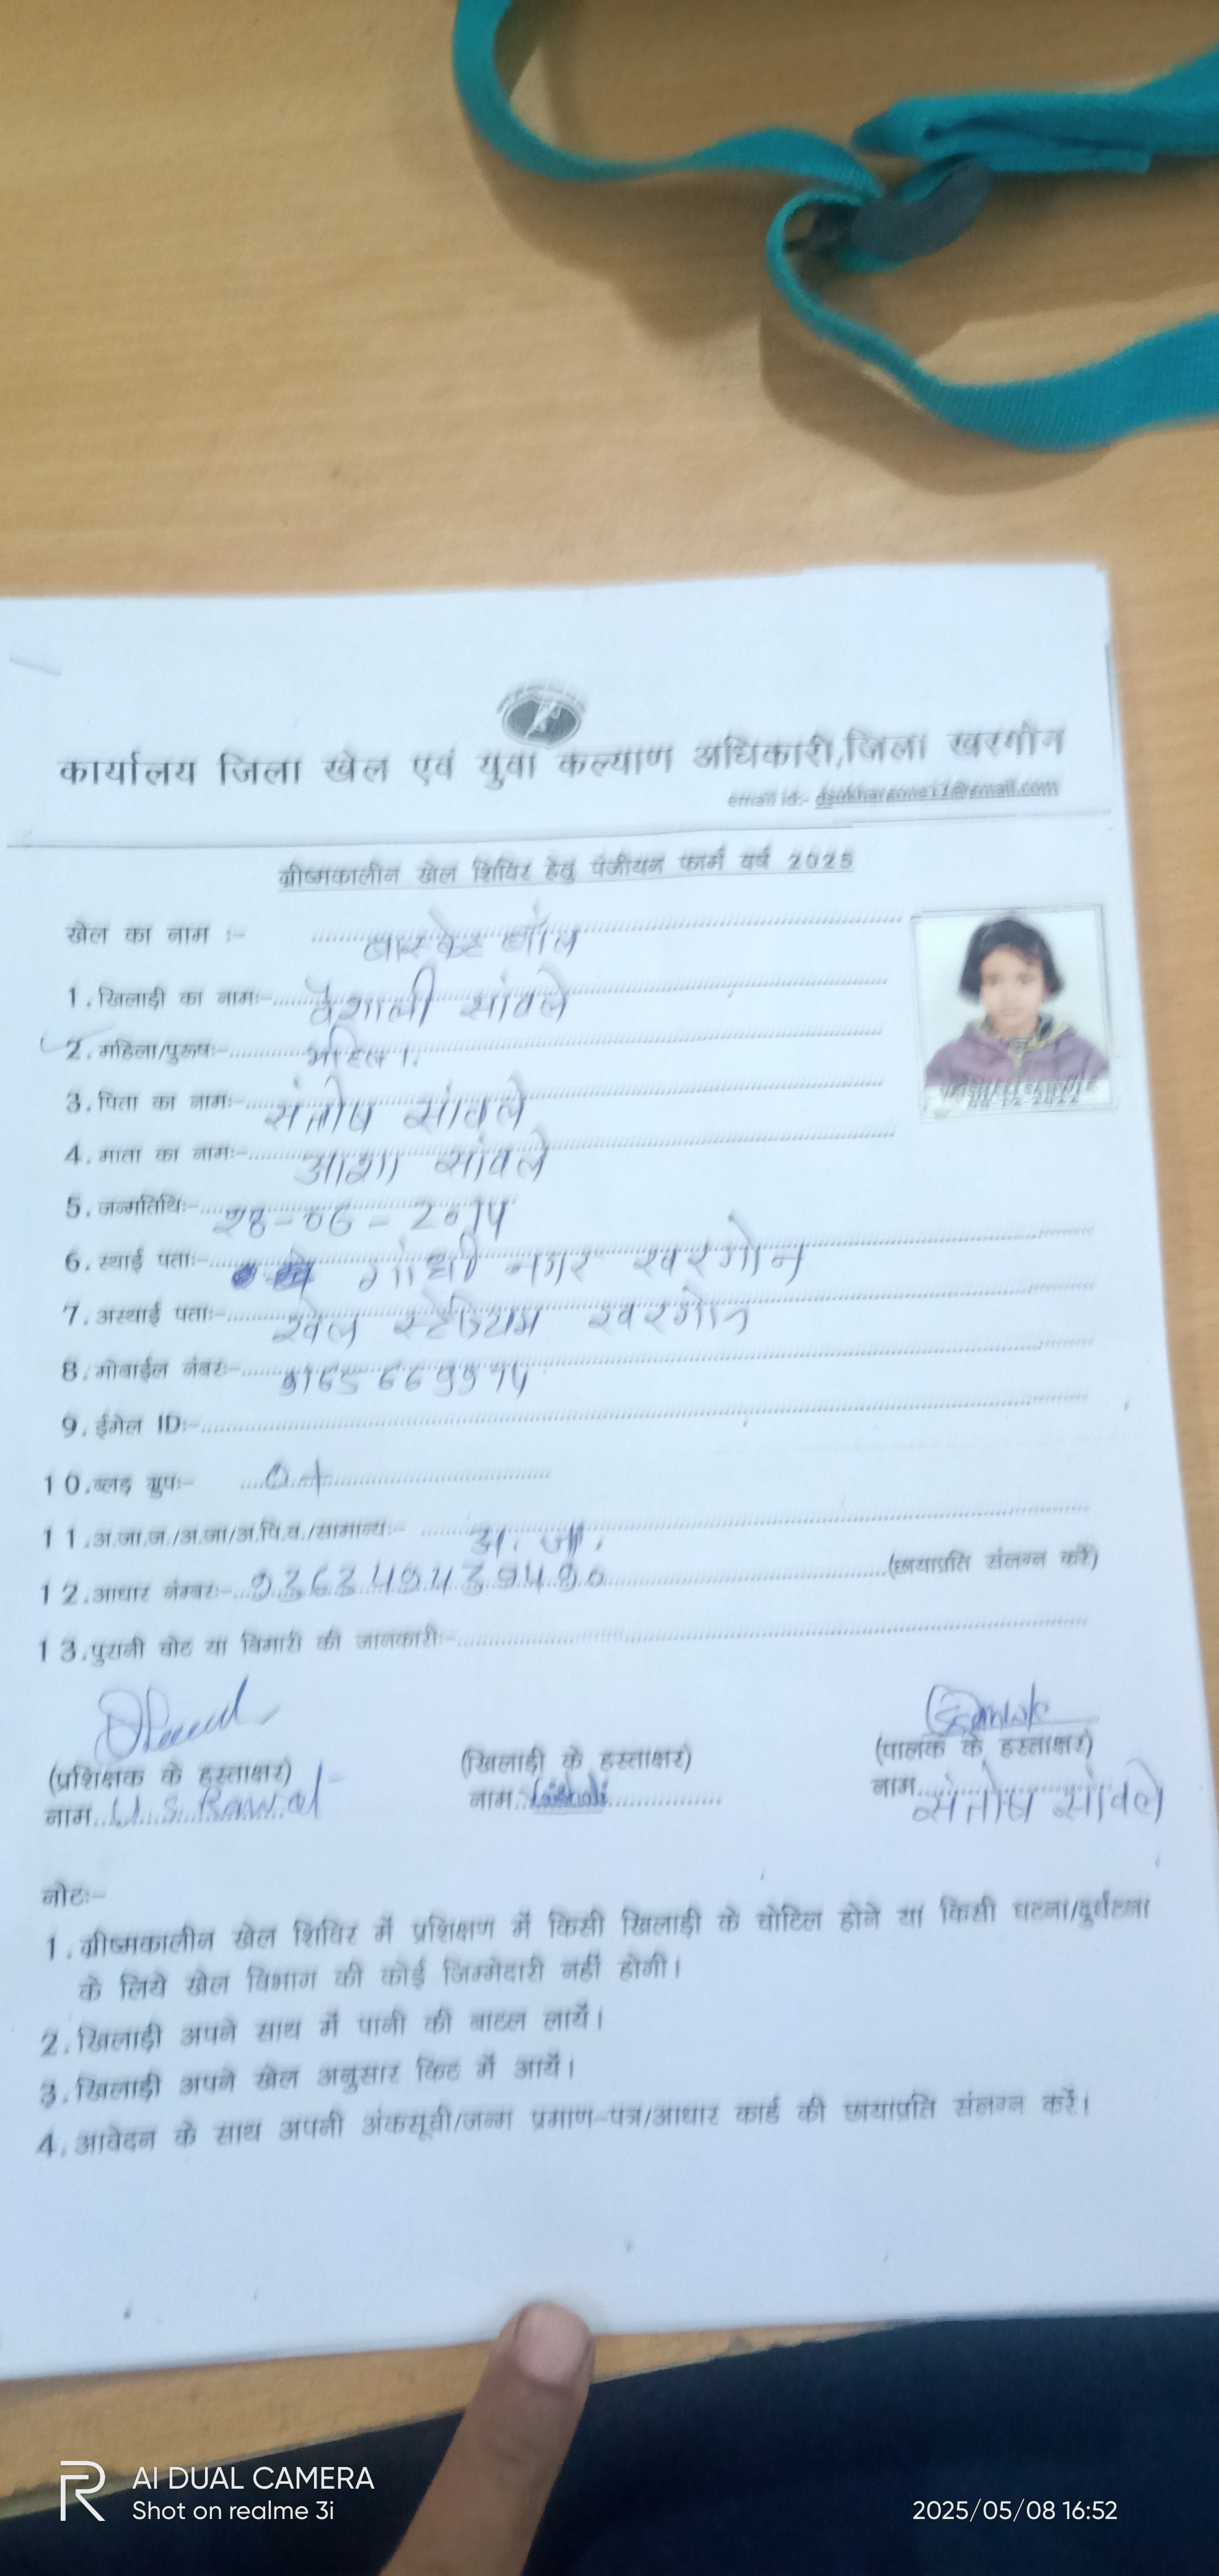 कार्यालय जिला खेल एवं युवा कल्याण अधिकारी,जिला खरगोन
email id:- dsokhargone11@gmail.com
ग्रीष्मकालीन खेल शिविर हेतु पंजीयन फार्म वर्ष 2025
खेल का नाम :- बास्केट बॉल
1.खिलाड़ी का नामः- वैशाली सांवले
2.महिला/पुरूषः- महिला
3.पिता का नामः- संतोष सांवले
4.माता का नामः- आशा सांवले
5.जन्मतिथिः- 28-06-2014
6.स्थाई पताः- गांधी नगर खरगोन
7.अस्थाई पताः- खेल स्टेडियम खरगोन
8.मोबाईल नंबरः-
9.ईमेल ID:-
10.ब्लड ग्रुपः- O+
11.अ.जा.ज./अ.जा/अ.पि.व./सामान्यः- अ. जा.
12.आधार नम्बरः- (छायाप्रति संलग्न करें)
13.पुरानी चोट या बिमारी की जानकारीः-
(प्रशिक्षक के हस्ताक्षर) (खिलाड़ी के हस्ताक्षर) (पालक के हस्ताक्षर)
नाम U.S. Rawal नाम Vaishali नाम संतोष सांवले
नोटः-
1.ग्रीष्मकालीन खेल शिविर में प्रशिक्षण में किसी खिलाड़ी के चोटिल होने या किसी घटना/दुर्घटना
के लिये खेल विभाग की कोई जिम्मेदारी नहीं होगी।
2.खिलाड़ी अपने साथ में पानी की बाटल लायें।
3.खिलाड़ी अपने खेल अनुसार किट में आयें।
4.आवेदन के साथ अपनी अंकसूची/जन्म प्रमाण-पत्र/आधार कार्ड की छायाप्रति संलग्न करें।
R AI DUAL CAMERA
Shot on realme 3i
2025/05/08 16:52